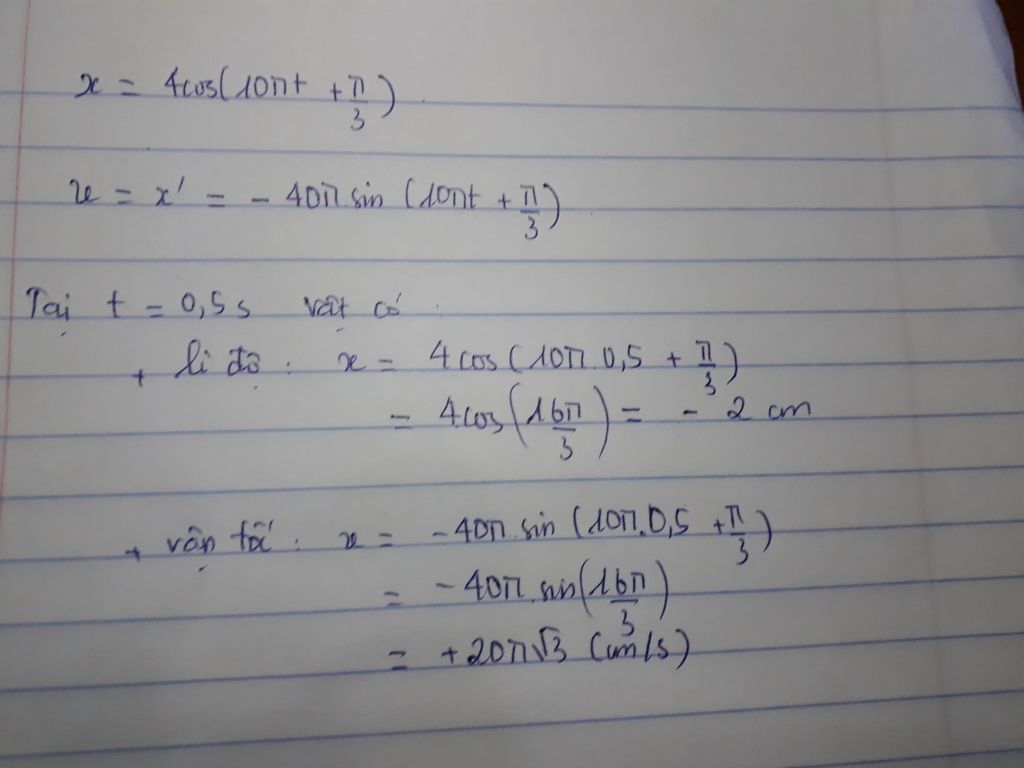 x = 4cos(10πt + π/3)
v = x' = - 40π sin (10πt + π/3)
Tại t = 0,5s vật có :
+ li độ : x = 4cos(10π.0,5 + π/3)
= 4cos(16π/3) = - 2 cm
+ vận tốc : v = -40π sin (10π.0,5 + π/3)
= -40π.sin(16π/3)
= +20π√3 (cm/s)